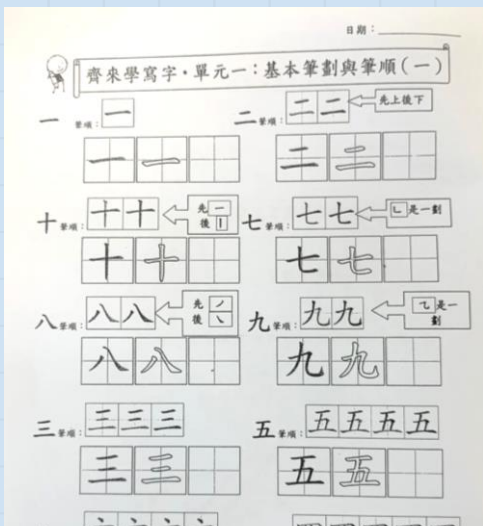 日期：
齊來學寫字・單元一：基本筆劃與筆順（一）
一 筆順：一
二 筆順：二 二 先上後下
一 一
二 二
十 筆順：十 十 先一 後丨
七 筆順：七 七 乚是一劃
十 十
七 七
八 筆順：八 八 先㇒ 後㇏
九 筆順：九 九 ⺄是一劃
八 八
九 九
三 筆順：三 三 三
五 筆順：五 五 五 五
三 三
五 五